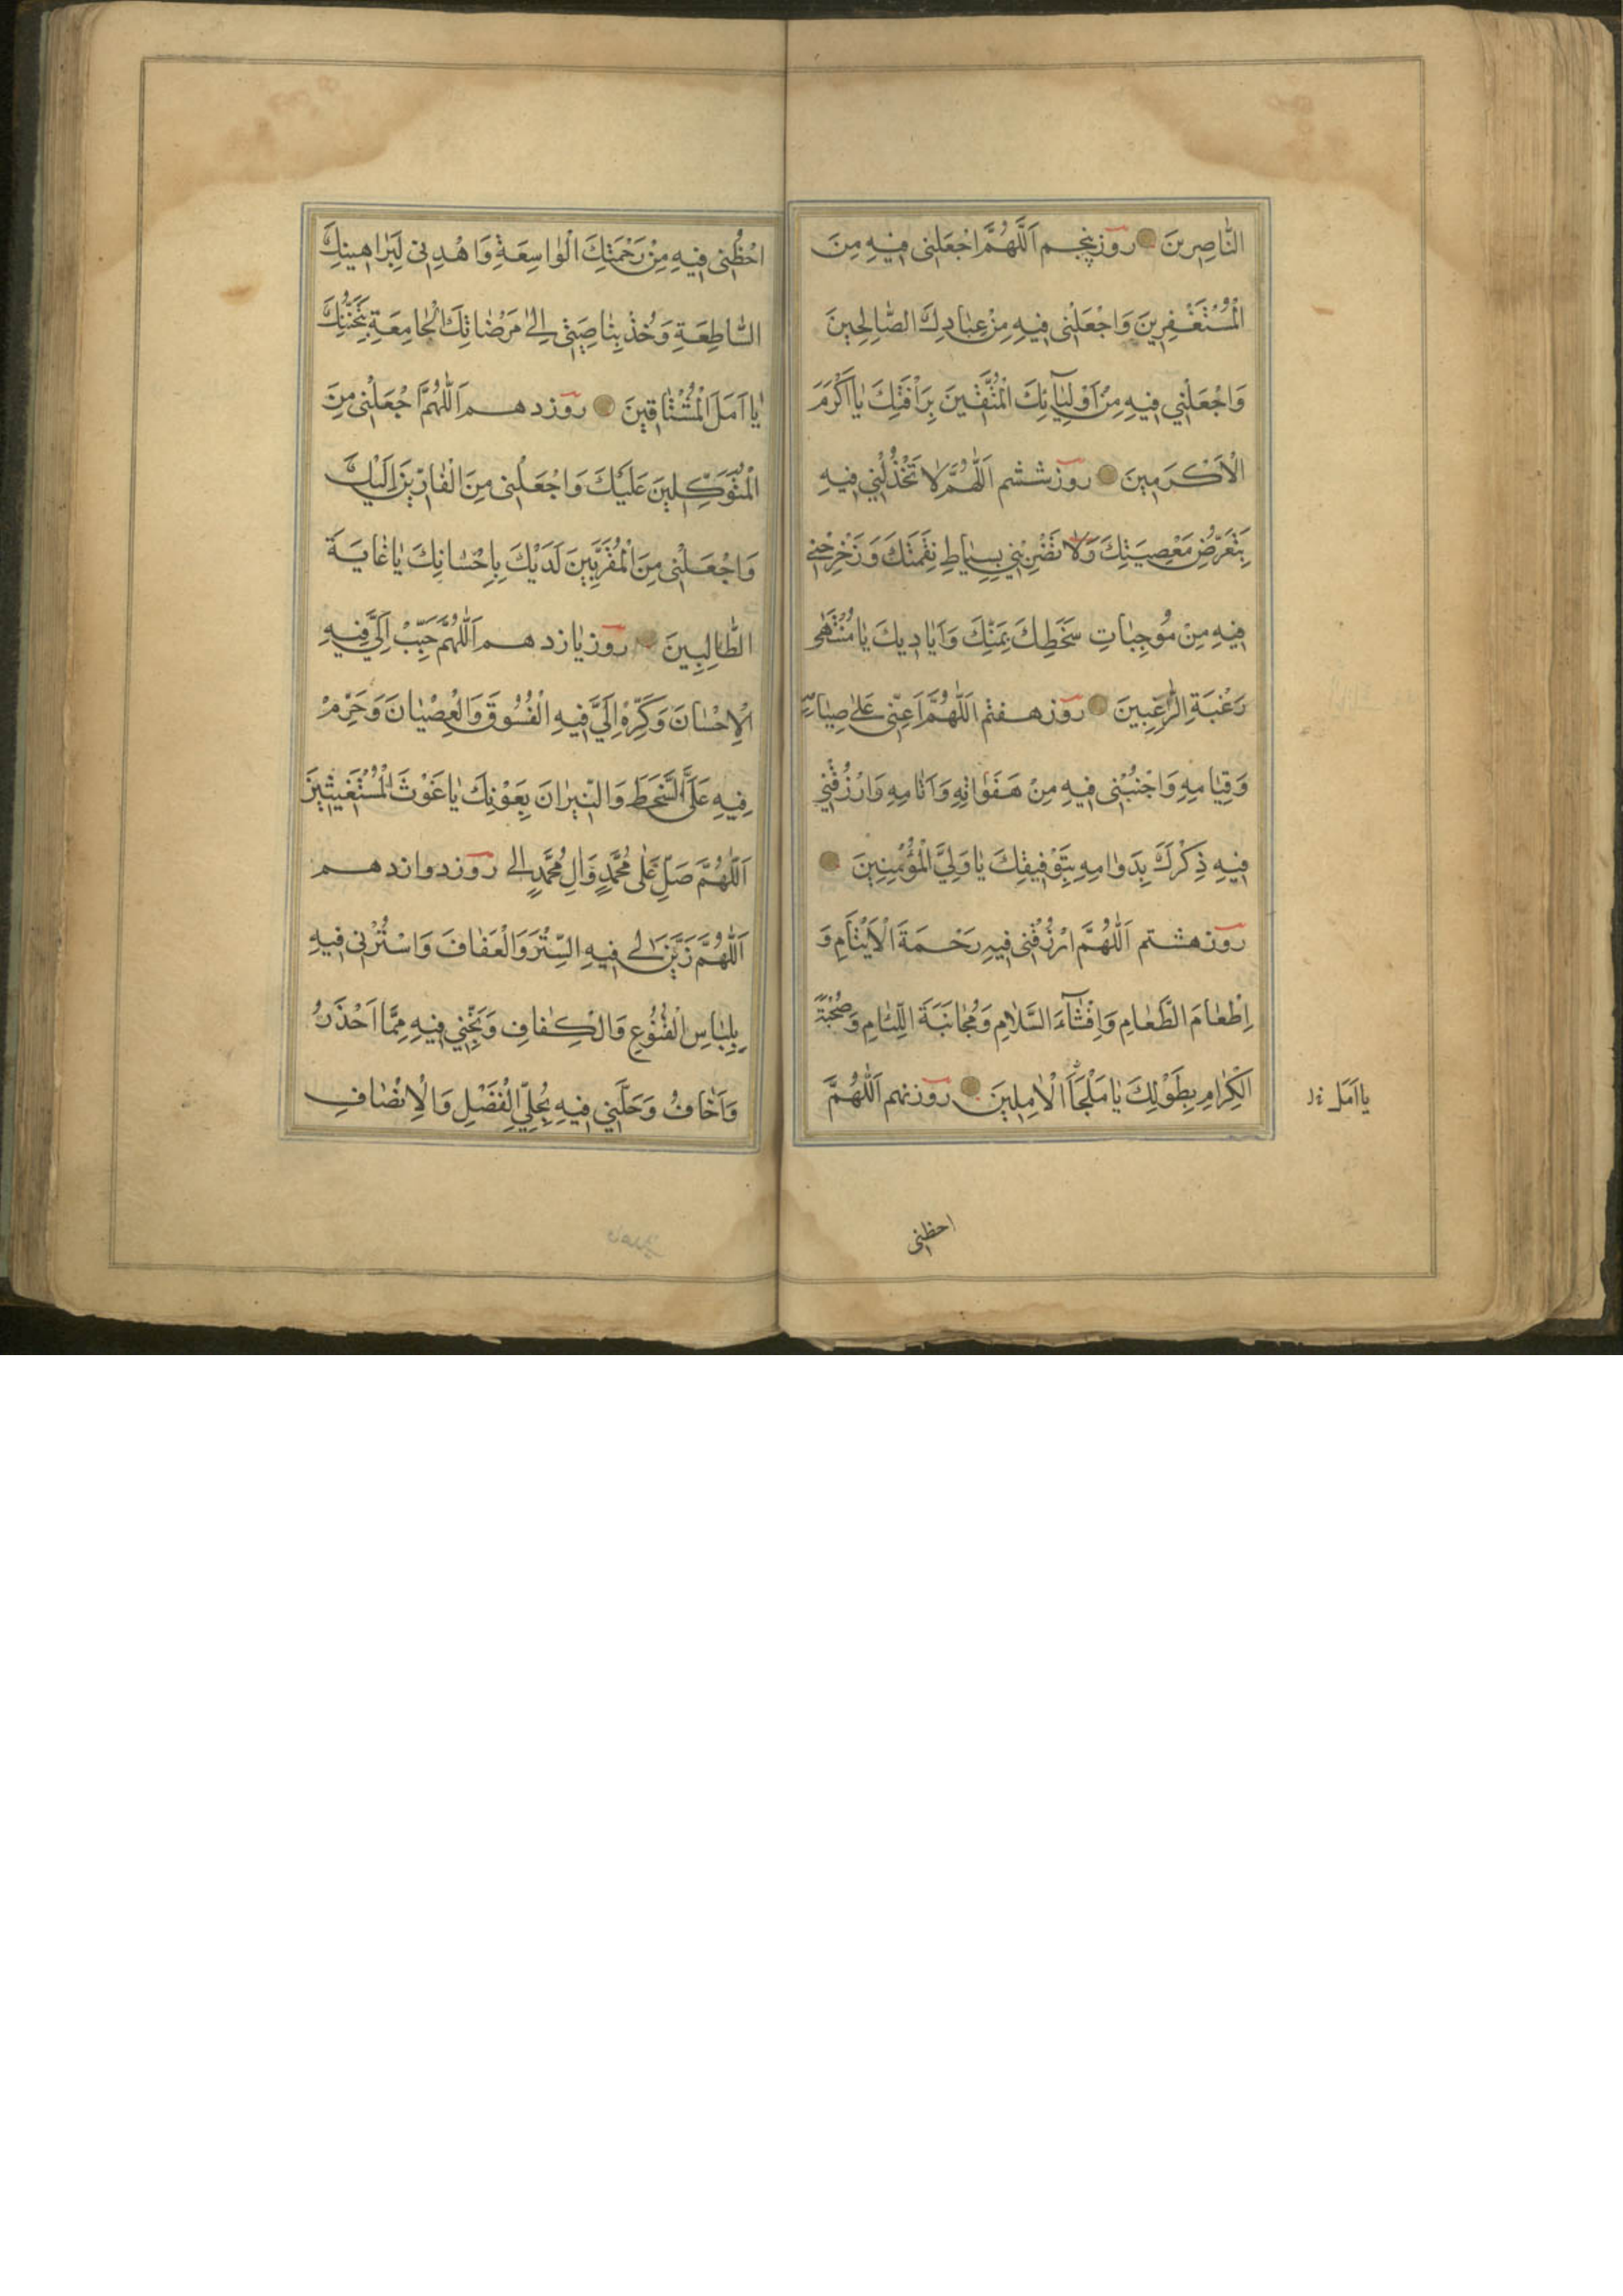 النّٰاصِرينَ روز پنجم اَللّٰهُمَّ اجْعَلنى فيٖهِ مِنَ
الْمُسْتَغْفِرينَ وَاجْعَلْنى فيٖهِ مِنْ عِبٰادِكَ الصّٰالِحٖينَ
وَاجْعَلْنٖي فيٖهِ مِنْ اَوْلِيٰآئِكَ الْمُتَّقٖينَ بِرَأْفَتِكَ يٰا اَكْرَمَ
الْاَكْرَمٖينَ روز ششم اَللّٰهُمَّ لٰا تَخْذُلْنٖي فيٖهِ
بِتَعَرُّضِ مَعْصِيَتِكَ وَلٰا تَضْرِبْنٖي بِسِيٰاطِ نِقْمَتِكَ وَزَحْزِحْنٖے
فيٖهِ مِنْ مُوجِبٰاتِ سَخَطِكَ بِمَنِّكَ وَاَيٰادٖيكَ يٰا مُنْتَهٰى
رَغْبَةِ الرّٰغِبٖينَ روز هفتم اَللّٰهُمَّ اَعِنّٖى عَلىٰ صِيٰامِهِ
وَقِيٰامِهِ وَاجْنُبْنٖى فيٖهِ مِنْ هَفَوٰاتِهِ وَاٰثٰامِهِ وَارْزُقْنٖي
فيٖهِ ذِكْرَكَ بِدَوٰامِهِ بِتَوْفٖيقِكَ يٰا وَلِيَّ الْمُؤْمِنٖينَ
روز هشتم اَللّٰهُمَّ ارْزُقْنٖى فيٖهِ رَحْمَةَ الْاَيْتٰامِ وَ
اِطْعٰامَ الطَّعٰامِ وَاِفْشٰآءَ السَّلٰامِ وَمُجٰانَبَةَ اللِّئٰامِ وَصُحْبَةَ
الْكِرٰامِ بِطَوْلِكَ يٰا مَلْجَأَ الْاٰمِلٖينَ روز نهم اَللّٰهُمَّ
احظنى
احْظُنٖى فيٖهِ مِنْ رَحْمَتِكَ الْوٰاسِعَةِ وَاهْدِنٖى لِبَرٰاهٖينِكَ
السّٰاطِعَةِ وَخُذْ بِنٰاصِيَتٖى اِلىٰ مَرْضٰاتِكَ الْجٰامِعَةِ بِمَحَبَّتِكَ
يٰا اَمَلَ الْمُشْتٰاقٖينَ روز دهم اَللّٰهُمَّ اجْعَلْنٖى مِنَ
الْمُتَوَكِّلٖينَ عَلَيْكَ وَاجْعَلْنٖى مِنَ الْفٰارّٖينَ اِلَيْكَ
وَاجْعَلْنٖى مِنَ الْمُقَرَّبٖينَ لَدَيْكَ بِاِحْسٰانِكَ يٰا غٰايَةَ
الطّٰالِبٖينَ روز يازدهم اَللّٰهُمَّ حَبِّبْ اِلَيَّ فيٖهِ
الْاِحْسٰانَ وَكَرِّهْ اِلَيَّ فيٖهِ الْفُسُوقَ وَالْعِصْيٰانَ وَحَرِّمْ
فيٖهِ عَلَيَّ السَّخَطَ وَالنّٖيرٰانَ بِعَوْنِكَ يٰا غَوْثَ الْمُسْتَغٖيثٖينَ
اَللّٰهُمَّ صَلِّ عَلٰى مُحَمَّدٍ وَاٰلِ مُحَمَّدٍ الى روز دوازدهم
اَللّٰهُمَّ زَيِّنْ لى فيٖهِ السِّتْرَ وَالْعَفٰافَ وَاسْتُرْنٖى فيٖهِ
بِلِبٰاسِ الْقُنُوعِ وَالْكِفٰافِ وَنَجِّنٖي فيٖهِ مِمَّا اَحْذَرُ
وَاَخٰافُ وَحَلِّنٖي فيٖهِ بِحُلِيِّ الْفَضْلِ وَالْاِنْصٰافِ